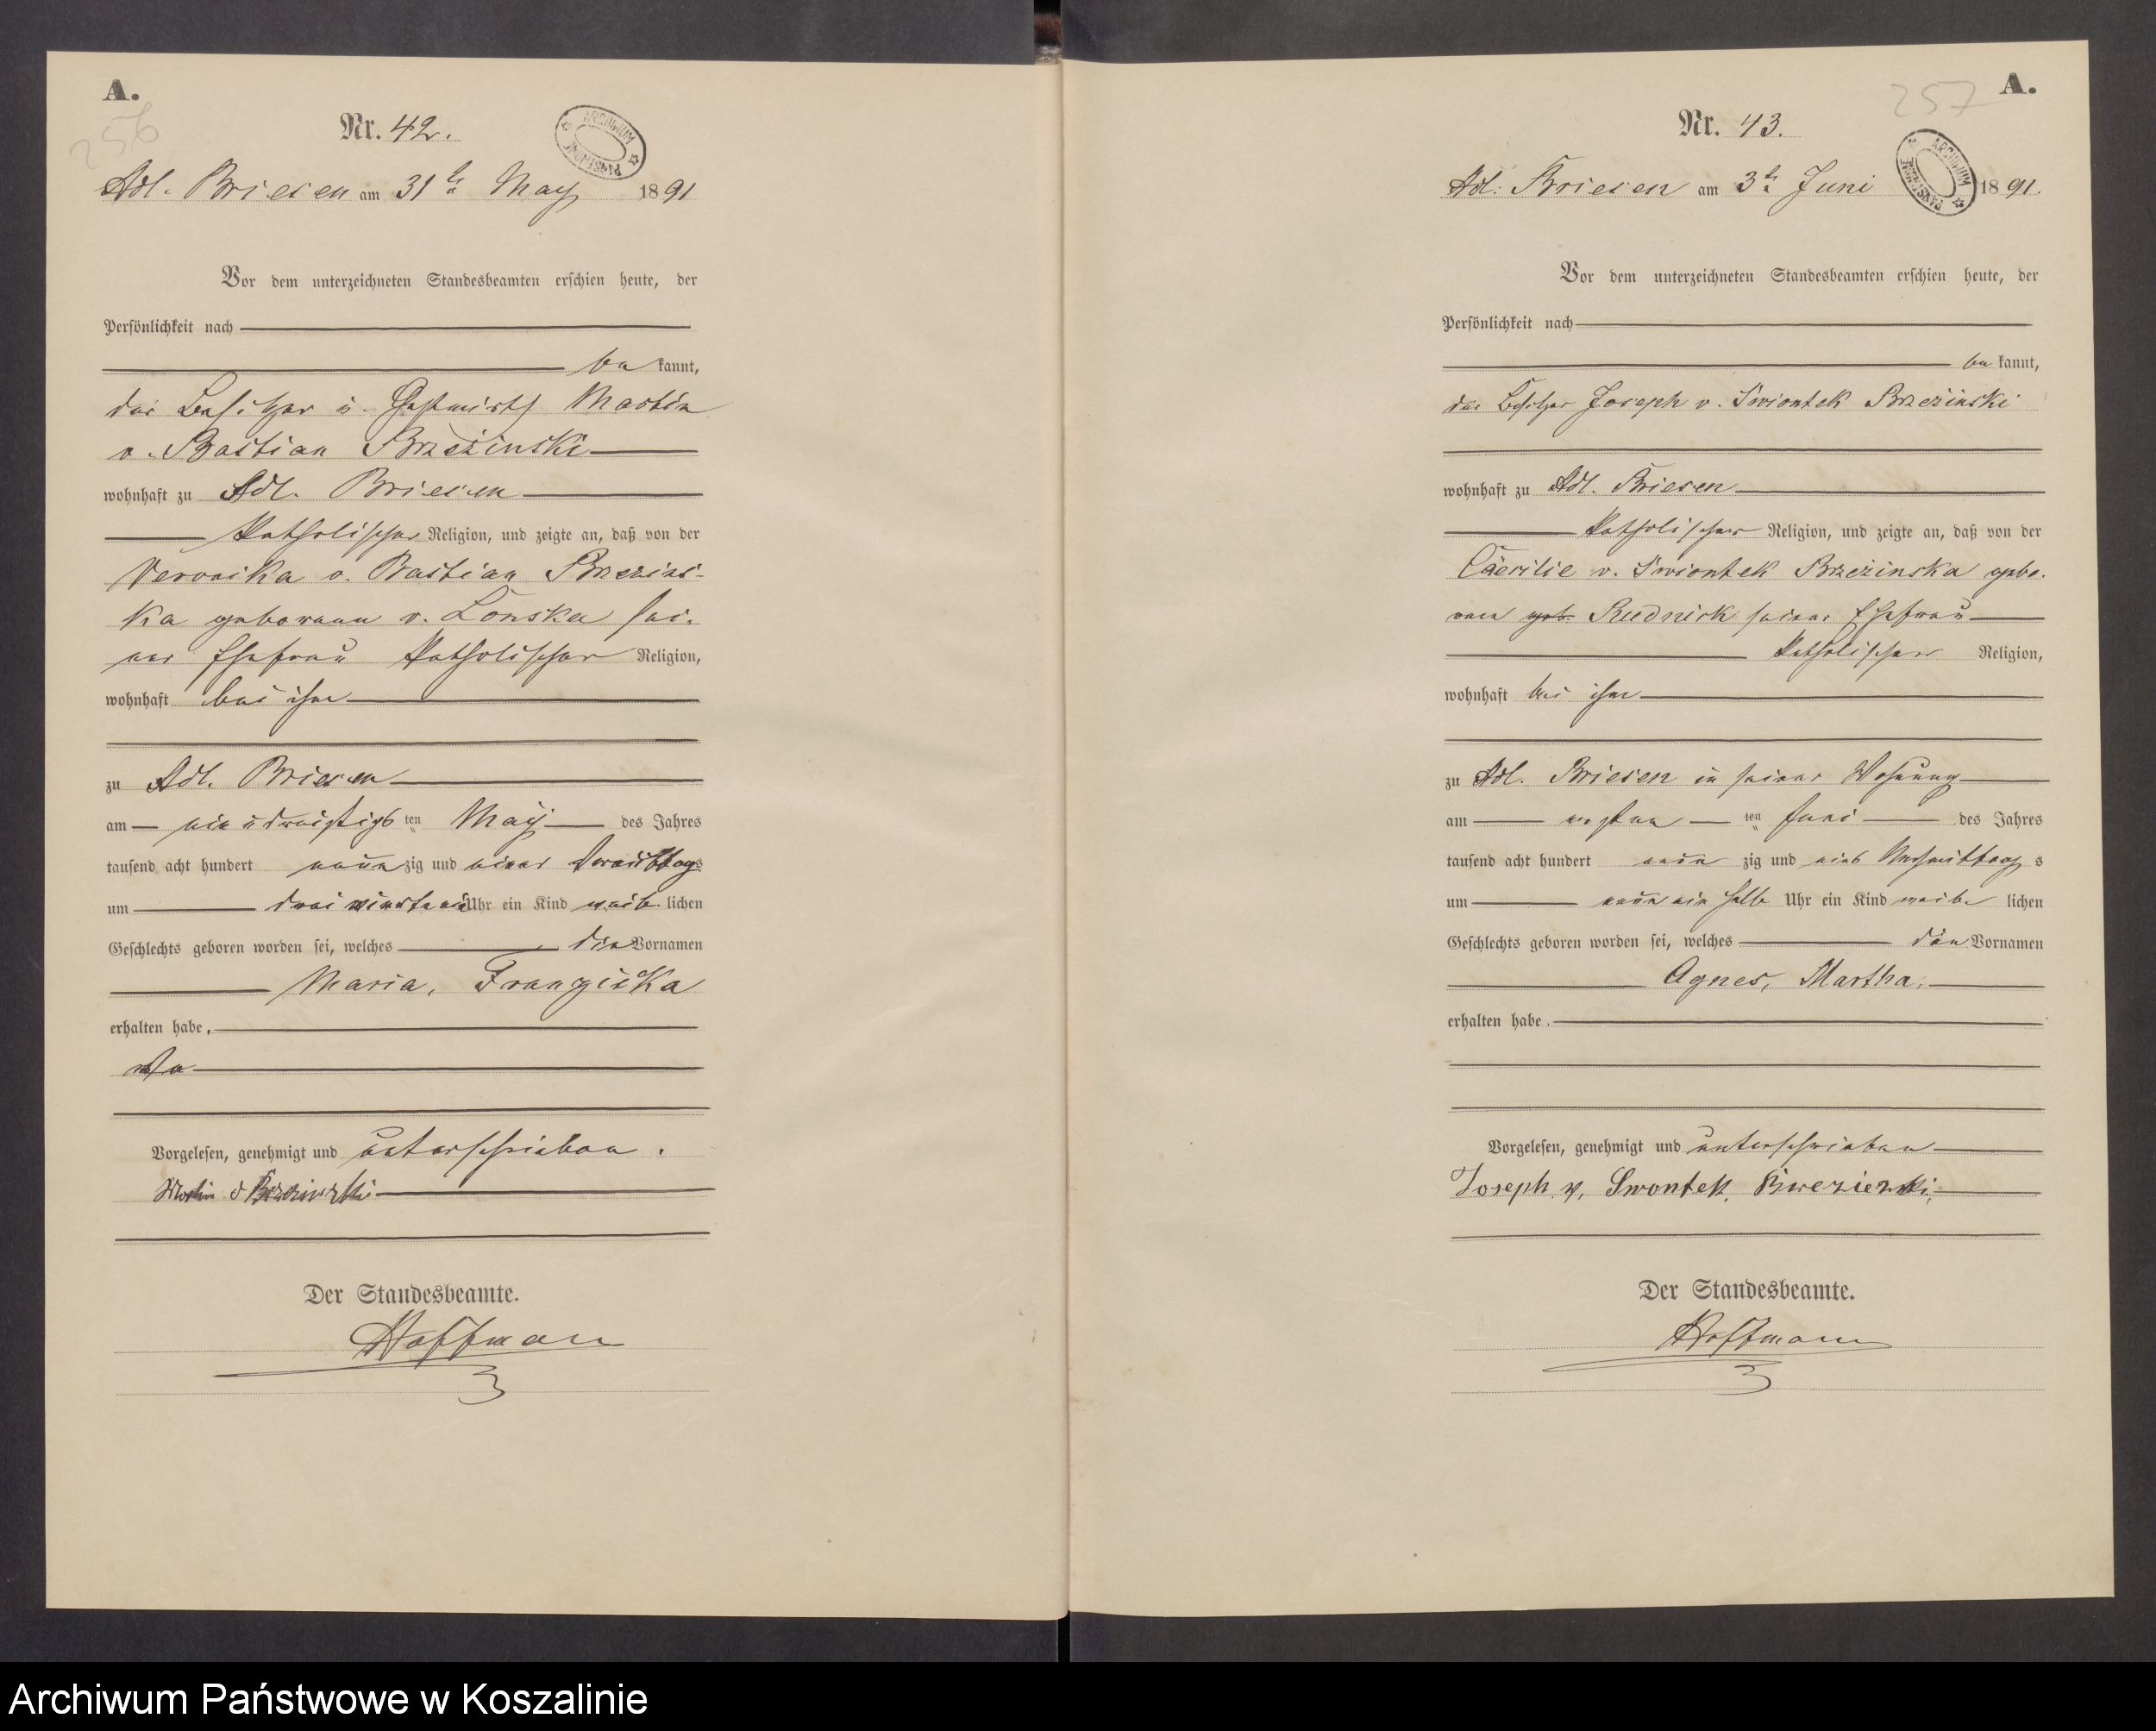 A.
256
Nr. 42.
ARCHIWUM PAŃSTWOWE
Adl. Briesen am 31ten May 1891
Vor dem unterzeichneten Standesbeamten erschien heute, der
Persönlichkeit nach
be kannt,
der Besitzer u. Gastwirth Martin
v. Bastian Brzezinski
wohnhaft zu Adl. Briesen
katholischer Religion, und zeigte an, daß von der
Veronika v. Bastian Brzezins-
ka geborenen v. Lonska sei-
ner Ehefrau katholischer Religion,
wohnhaft bei ihm
zu Adl. Briesen
am ein u dreißigsten May des Jahres
tausend acht hundert neunzig und eines Vormittags
um drei viertel Uhr ein Kind weib lichen
Geschlechts geboren worden sei, welches die Vornamen
Maria, Franziska
erhalten habe.
Vorgelesen, genehmigt und unterschrieben.
Martin v Brzezinski
Der Standesbeamte.
Hoffmann
A.
257
Nr. 43.
ARCHIWUM PAŃSTWOWE
Adl. Briesen am 3ten Juni 1891.
Vor dem unterzeichneten Standesbeamten erschien heute, der
Persönlichkeit nach
be kannt,
der Besitzer Joseph v. Swiontek Brzezinski
wohnhaft zu Adl. Briesen
katholischer Religion, und zeigte an, daß von der
Cäecilie v. Swiontek Brzezinska gebo-
rnen geb. Rudnick seiner Ehefrau
katholischer Religion,
wohnhaft bei ihm
zu Adl. Briesen in seiner Wohnung
am ersten ten Juni des Jahres
tausend acht hundert neun zig und eins Nachmittag s
um neun ein halb Uhr ein Kind weib lichen
Geschlechts geboren worden sei, welches die Vornamen
Agnes, Martha.
erhalten habe.
Vorgelesen, genehmigt und unterschrieben
Joseph v. Swontek Brzezinski
Der Standesbeamte.
Hoffmann
Archiwum Państwowe w Koszalinie